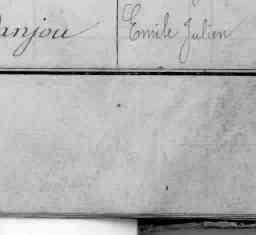 anjou Emile Julien